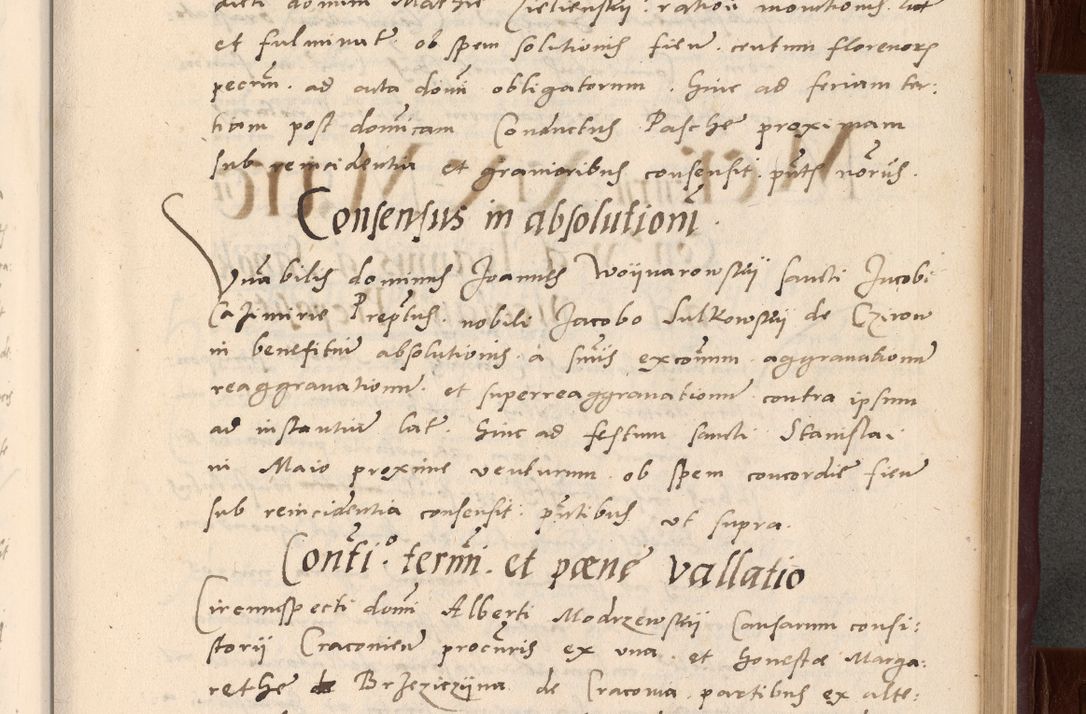 dicti domini Mathie Zielienskÿ ratioñ monitionis lat
et fulminat̃. ob spem solutionis fiend̃. centum florenorꝝ
pecuñ. ad acta domĩ obligatorum. Hinc ad feriam ter:
tiam post domicam Conductus Pasche proximam
sub reincidentia et gravioribus consensit. pñts noṙus.
Consensus in absolutioñ.
Vñabilis dominus Joannes Woÿnarowskÿ sancti Jacobi
Cazimirie Preptus. nobili Jacobo Sulkowskÿ de Czirow
in benefitiũ absolutionis a sñiis excoñum. aggravationũ
reaggravationũ. et superreaggravationũ contra ipsum
ad instantiã lat̃. Hinc ad festum sancti Stanislai
in Maio proxime venturum. ob spem concordie fiend̃
sub reincidentia consensit. pñtibus ut supra.
Conti.º termĩ. et pœnę vallatio
Circumspecti domĩ Alberti Modrzewskÿ Causarum consi:
storÿ Cracovień procuris ex una. et honestæ Marga:
rethe Brzezicziina de Cracovia partibus ex alte: